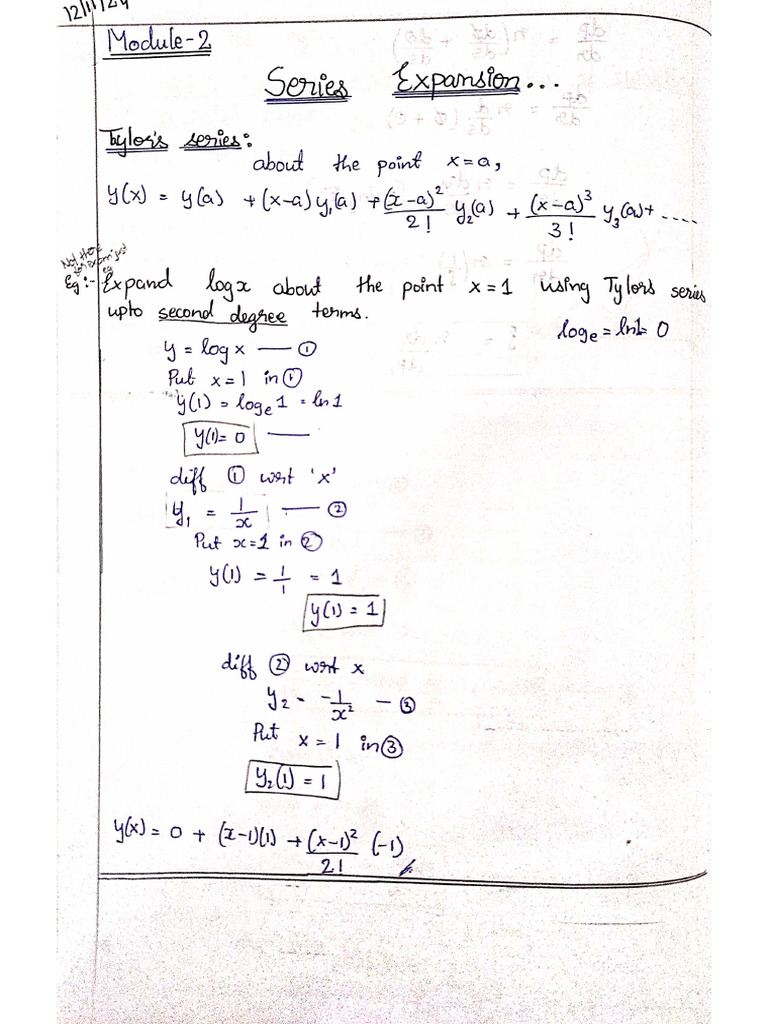 12/11/24
Module-2
Series Expansion...
Taylor's series:
about the point x=a,
y(x) = y(a) + (x-a) y₁(a) + (x-a)²/2! y₂(a) + (x-a)³/3! y₃(a)+ .....
Not there
Eg:- Expand logx about the point x=1 using Tylors series
upto second degree terms.
logₑ = ln1= 0
y = logx — ①
Put x=1 in ①
y(1) = logₑ1 = ln1
y(1)= 0 —
diff ① wrt 'x'
y₁ = 1/x — ②
Put x=1 in ②
y(1) = 1/1 = 1
y(1) = 1
diff ② wrt x
y₂ = -1/x² — ③
Put x = 1 in ③
y₂(1) = 1
y(x) = 0 + (x-1)(1) + (x-1)²/2! (-1)